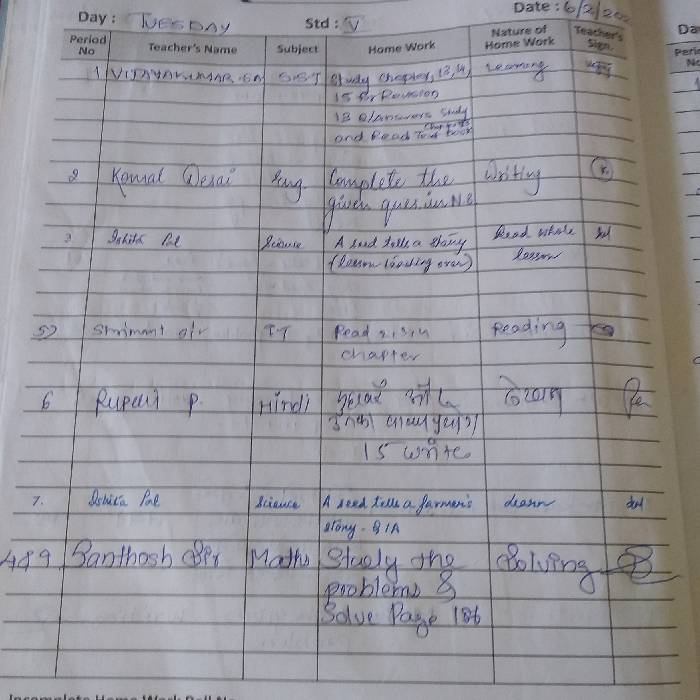 Day : TUESDAY Std : V Date : 6/2/202
Period No Teacher's Name Subject Home Work Nature of Home Work Teacher's Sign.
1 VIJAYAKUMAR S.ST Study Chapter, 13, 14, Learning
15 for Revision
13 Q/Answers Study
and Read Text book
2 Komal Desai Eng. Complete the Writing
given ques. in N.B
3 Ishita Pal Science A seed tells a story Read whole
(lesson reading over) lesson
5) Shrimant sir IT Read 2, 3, 4 Reading
chapter
6 Rupali P. Hindi मुहावरे और लेखन
उनका वाक्य प्रयोग
15 write
7. Ishita Pal Science A seed tells a farmer's learn
story - Q/A
4&9 Santhosh Sir Maths Study the Solving
problems &
Solve Page 186
Incomplete Home Work Roll No